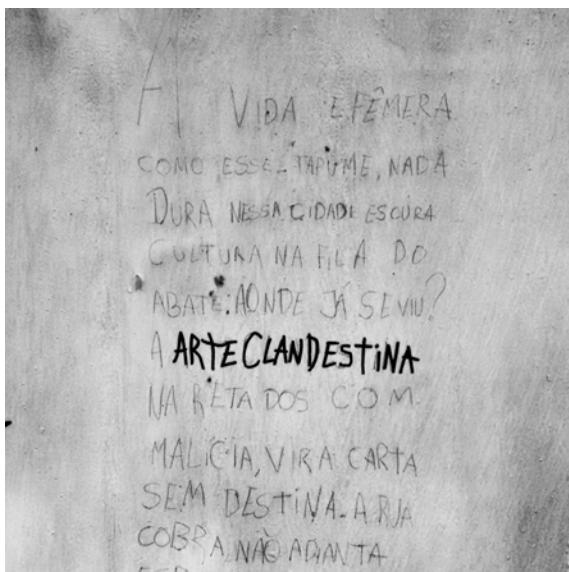 A VIDA EFÊMERA
COMO ESSE TAPUME, NADA
DURA NESSA CIDADE ESCURA
CULTURA NA FILA DO
ABATE: AONDE JÁ SE VIU?
A ARTE CLANDESTINA
NA RETA DOS COM
MALÍCIA, VIRA CARTA
SEM DESTINA. A RUA
COBRA NÃO ADIANTA